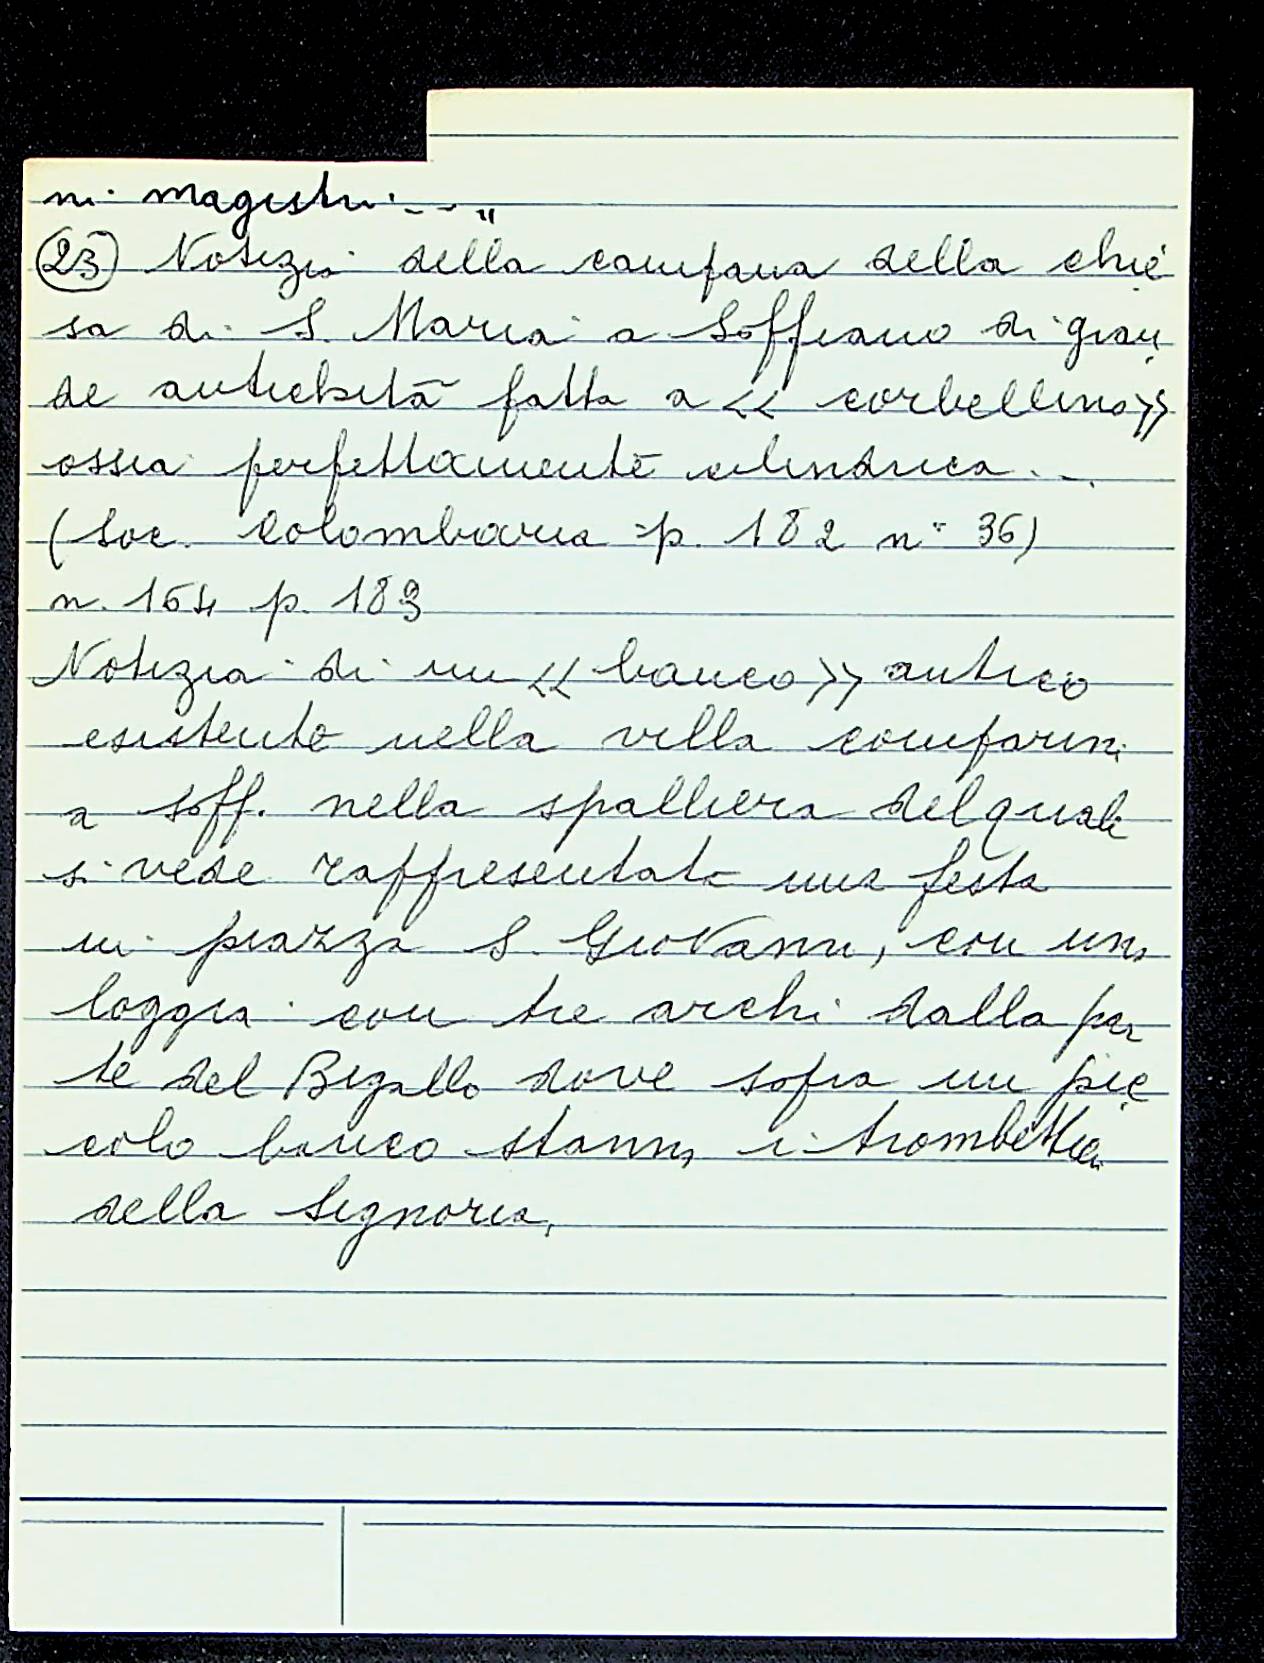 ni magistri..."
(23) Notizia della campana della chie
sa di S. Maria a Soffiano di gran
de antichità fatta a << corbellino>>
ossia perfettamente cilindrica...
(Soc. Colombaria = p. 182 n° 36)
n. 164 p. 189
Notizia di un << banco >> antico
esistente nella villa comparini
a Soff. nella spalliera del quale
si vede rappresentata una festa
in piazza S. Giovanni, con una
loggia con tre archi dalla par
te del Bigallo dove sopra un pic
colo banco stanno i trombettieri
della Signoria,